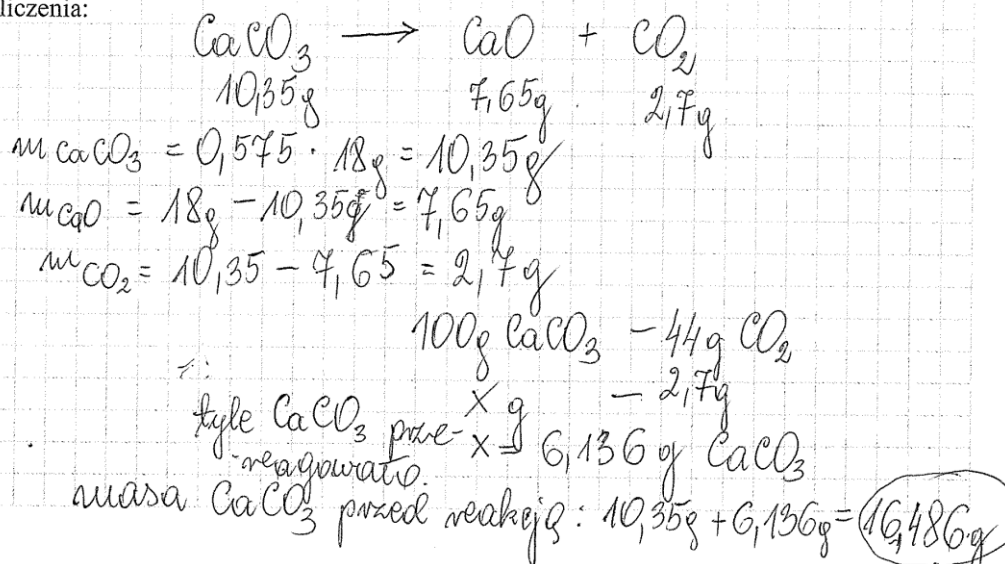 liczenia:
CaCO₃ → CaO + CO₂
10,35g 7,65g 2,7g
m CaCO₃ = 0,575 · 18g = 10,35g
m CaO = 18g − 10,35g = 7,65g
m CO₂ = 10,35 − 7,65 = 2,7g
100g CaCO₃ − 44g CO₂
x g − 2,7g
tyle CaCO₃ prze-
-reagowało. x = 6,136 g CaCO₃
masa CaCO₃ przed reakcją: 10,35g + 6,136g = 16,486g